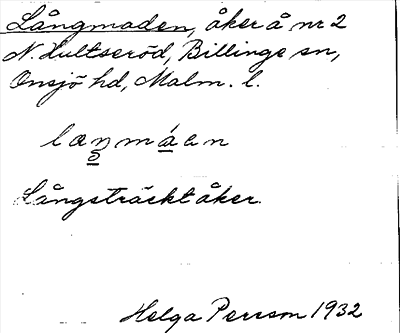 Långmaden, åker å nr 2
N. Hultseröd, Billinge sn,
Onsjö hd, Malm. l.
laŋmáan
Långsträckt åker.
Helga Persson 1932